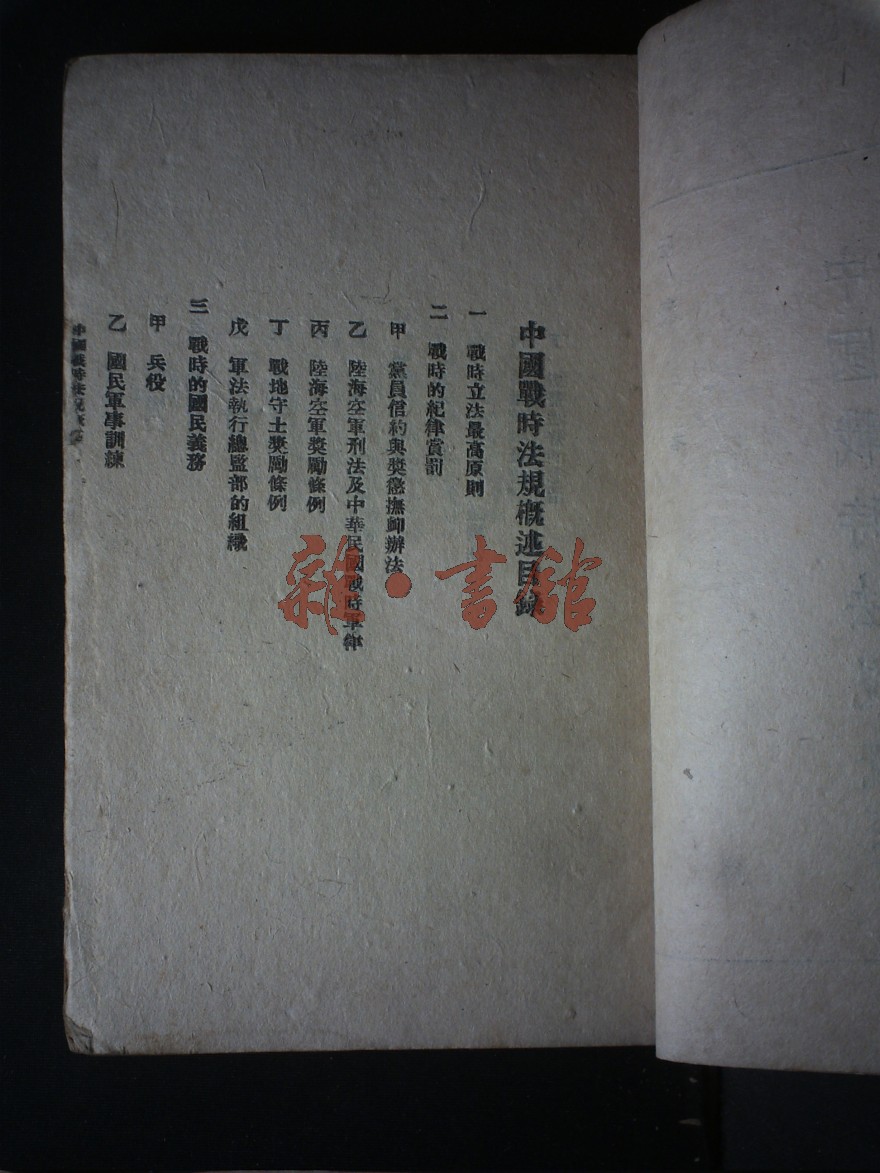 中國戰時法規概述目錄
一 戰時立法最高原則
二 戰時的紀律賞罰
甲 黨員信約與獎懲撫卹辦法
乙 陸海空軍刑法及中華民國戰時軍律
丙 陸海空軍獎勵條例
丁 戰地守土獎勵條例
戊 軍法執行總監部的組織
三 戰時的國民義務
甲 兵役
乙 國民軍事訓練
中國戰時法規
雜·書館